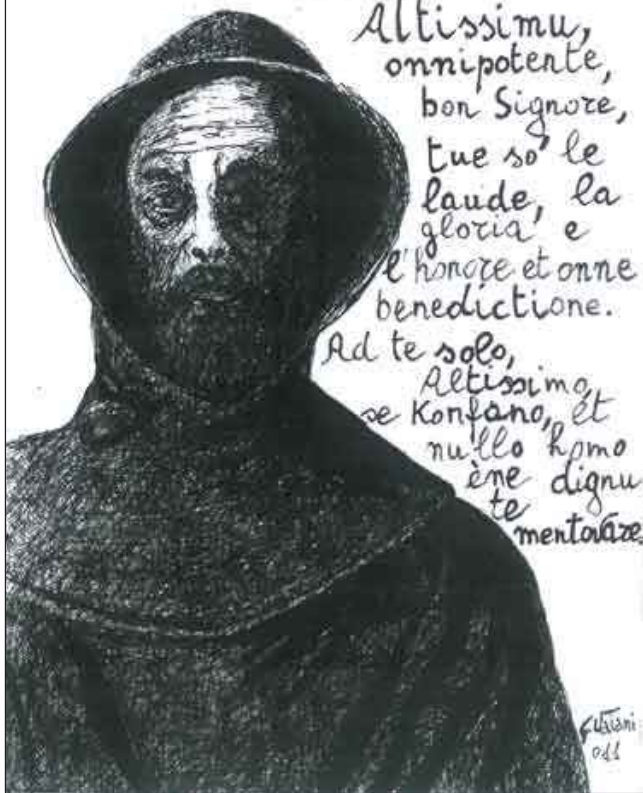 Altissimu,
onnipotente,
bon Signore,
tue so' le
laude, la
gloria e
l'honore et onne
benedictione.
Ad te solo,
Altissimo,
se Konfano, et
nullo homo
ène dignu
te
mentovare.
011